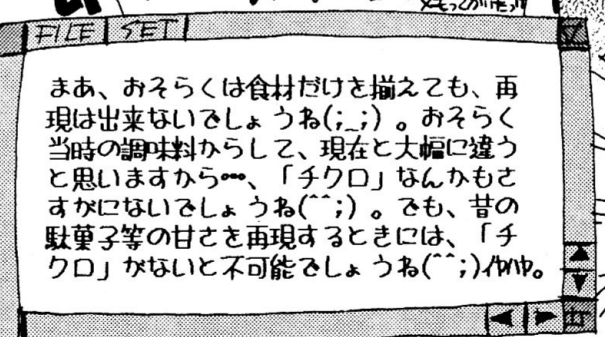 FILE SET
まあ、おそらくは食材だけを揃えても、再
現は出来ないでしょうね(;_;)。おそらく
当時の調味料からして、現在と大幅に違う
と思いますから…、「チクロ」なんかもさ
すがにないでしょうね(^^;)。でも、昔の
駄菓子等の甘さを再現するときには、「チ
クロ」がないと不可能でしょうね(^^;)ｲﾔﾊﾔ。